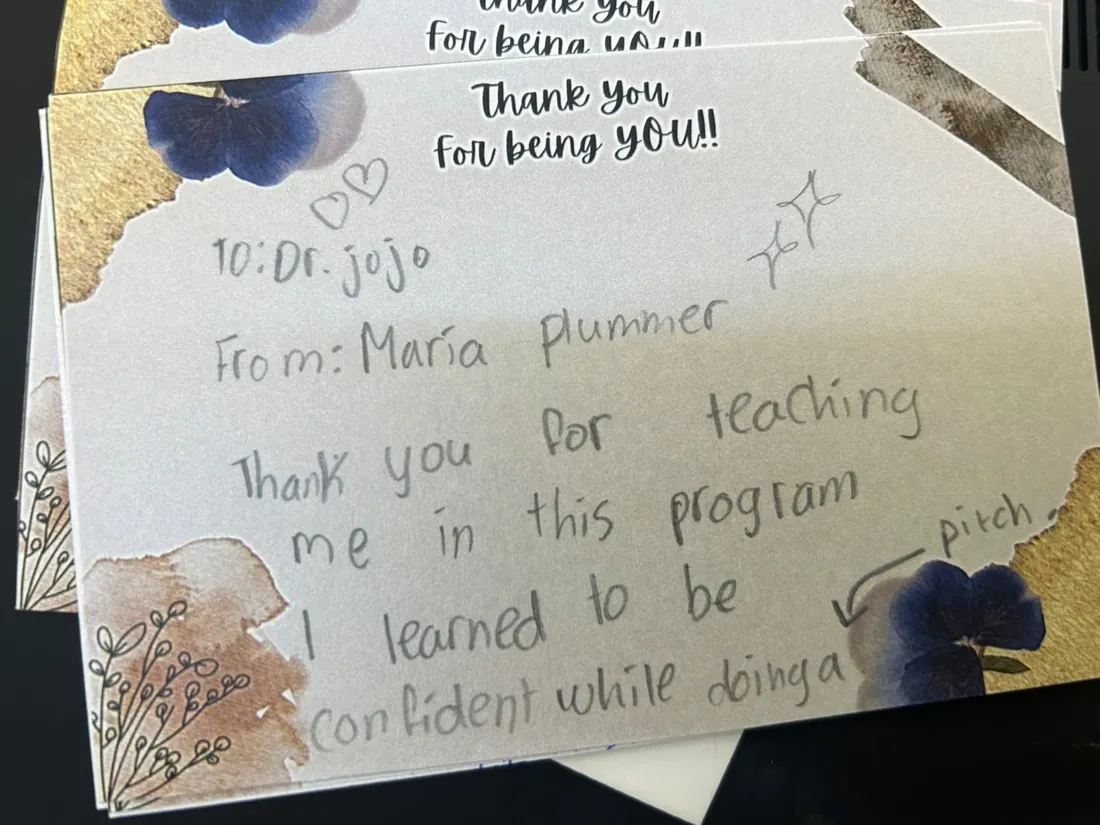 Thank You
For being YOU!!
Thank You
For being YOU!!
To: Dr. jojo
From: Maria plummer
Thank you for teaching
me in this program
pitch.
I learned to be
confident while doing a